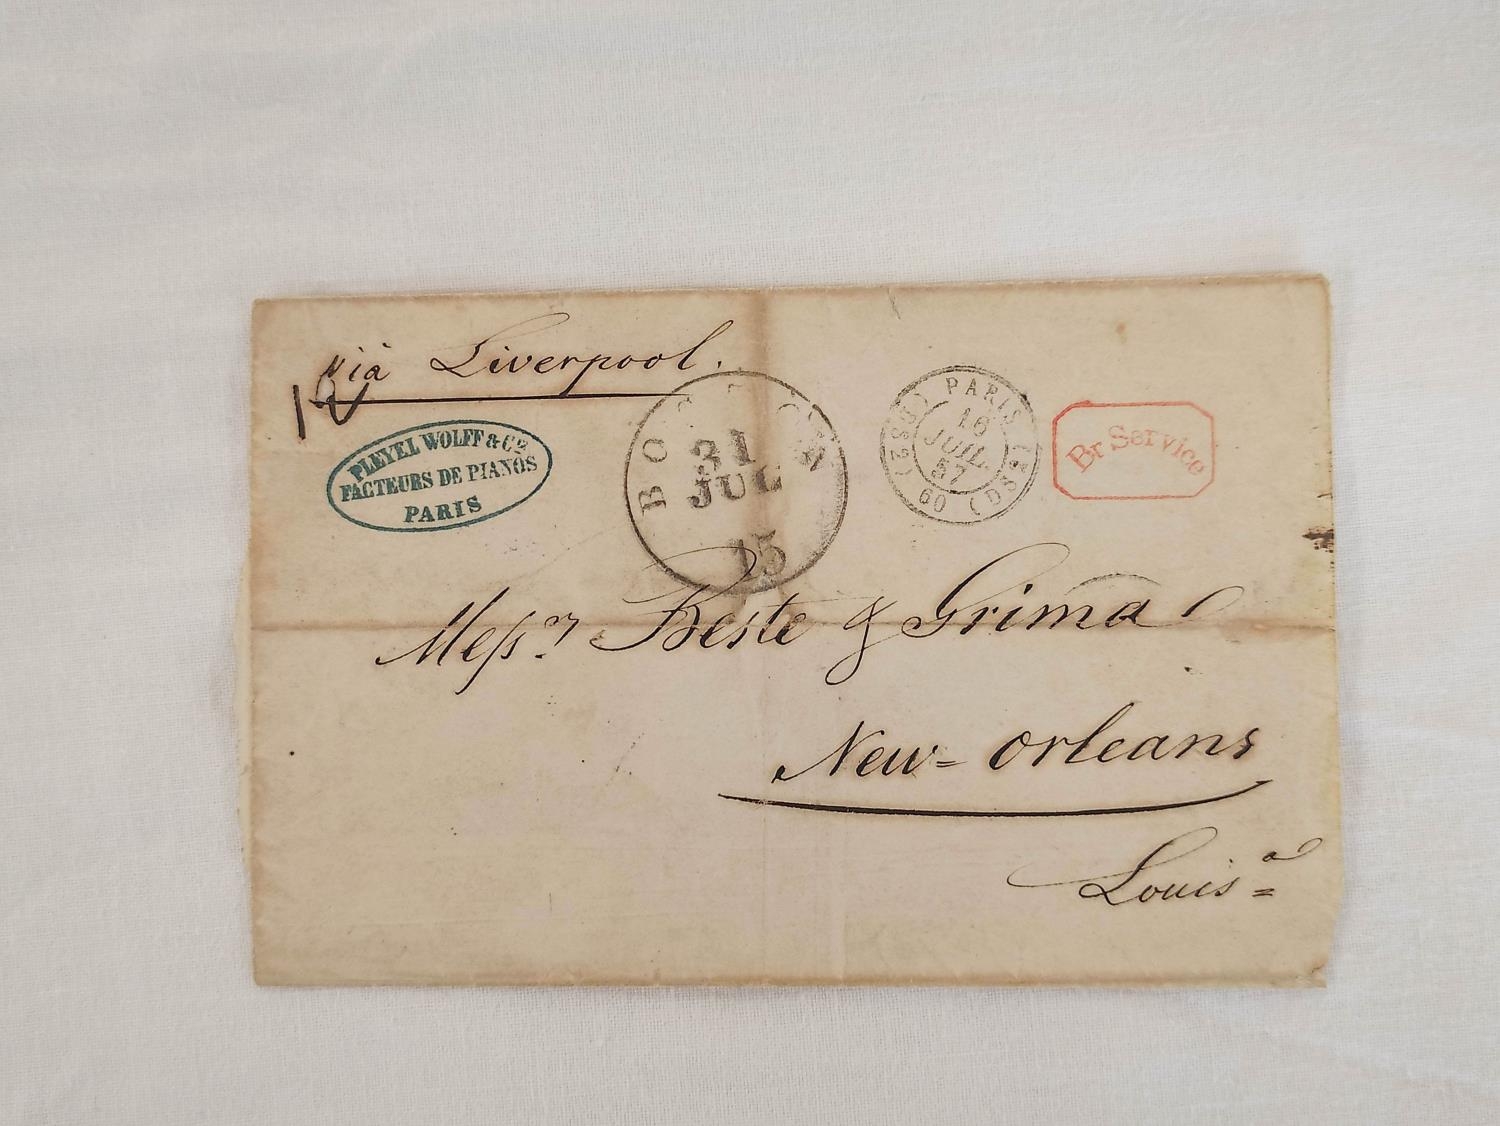 vià Liverpool.
12
PLEYEL WOLFF & Cº
FACTEURS DE PIANOS
PARIS
BOSTON
31
JUL
15
PARIS
16
JUIL.
57
60
Br Service
Messrs Beste & Grima
New-Orleans
Louisª